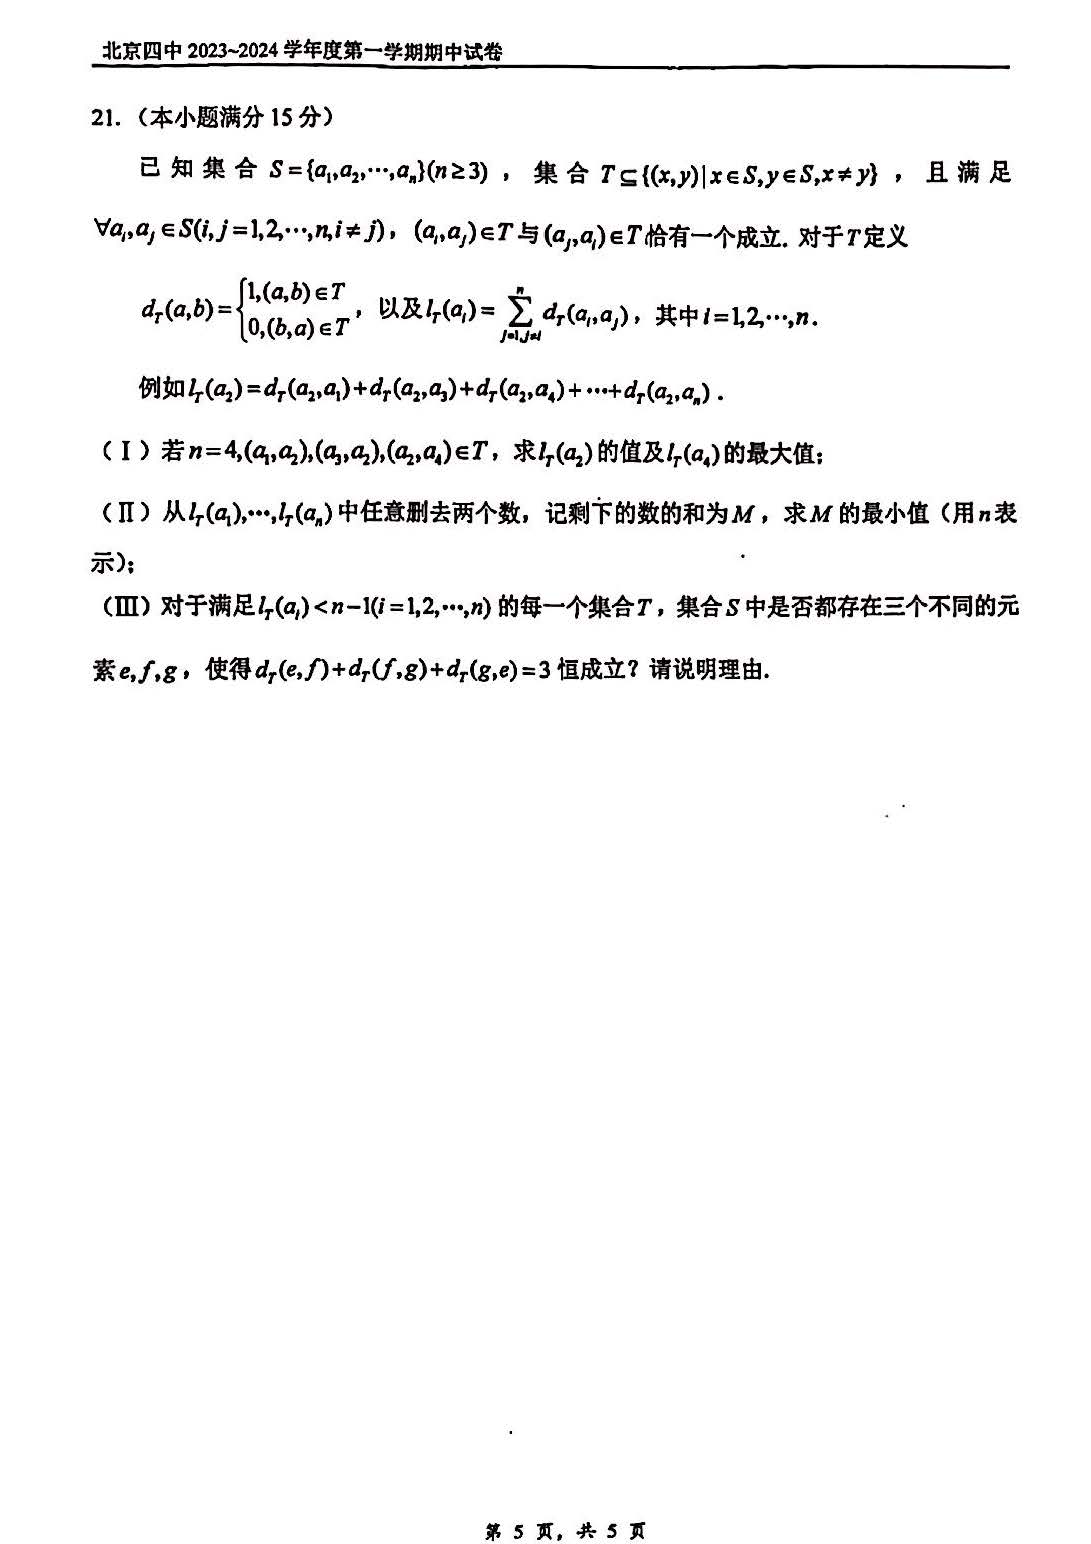 北京四中2023~2024学年度第一学期期中试卷
21.（本小题满分15分）
已知集合 S={a₁,a₂,⋯,aₙ}(n≥3)，集合 T⊆{(x,y)|x∈S,y∈S,x≠y}，且满足
∀aᵢ,aⱼ∈S(i,j=1,2,⋯,n,i≠j)，(aᵢ,aⱼ)∈T与(aⱼ,aᵢ)∈T恰有一个成立. 对于T定义
d_T(a,b)={1,(a,b)∈T 0,(b,a)∈T，以及l_T(aᵢ)=∑_{j=1,j≠i}^{n} d_T(aᵢ,aⱼ)，其中i=1,2,⋯,n.
例如l_T(a₂)=d_T(a₂,a₁)+d_T(a₂,a₃)+d_T(a₂,a₄)+⋯+d_T(a₂,aₙ).
（Ⅰ）若n=4,(a₁,a₂),(a₃,a₂),(a₂,a₄)∈T，求l_T(a₂)的值及l_T(a₄)的最大值;
（Ⅱ）从l_T(a₁),⋯,l_T(aₙ)中任意删去两个数，记剩下的数的和为M，求M的最小值（用n表
示）;
（Ⅲ）对于满足l_T(aᵢ)<n−1(i=1,2,⋯,n)的每一个集合T，集合S中是否都存在三个不同的元
素e,f,g，使得d_T(e,f)+d_T(f,g)+d_T(g,e)=3恒成立？请说明理由.
第 5 页，共 5 页